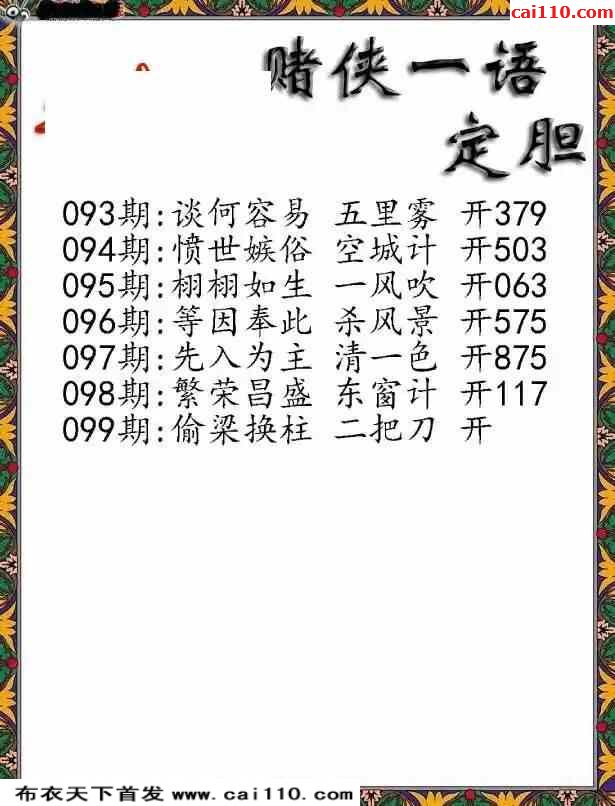 cai110.com
赌侠一语
定胆
093期:谈何容易 五里雾 开379
094期:愤世嫉俗 空城计 开503
095期:栩栩如生 一风吹 开063
096期:等因奉此 杀风景 开575
097期:先入为主 清一色 开875
098期:繁荣昌盛 东窗计 开117
099期:偷梁换柱 二把刀 开
布衣天下首发 www.cai110.com